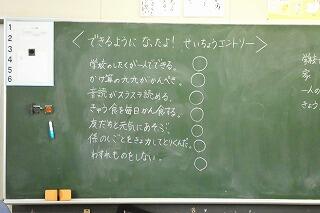 <できるように なったよ! せいちょうエントリー>
学校のしたくが一人でできる。
かけ算の九九がかんぺき。
音読がスラスラ読める。
きゅう食を毎日かん食する。
友だちと元気にあそぶ。
係のしごとをきょう力してとりくんだ。
わすれものをしない。
1
2
3
4
5
6
学校
家
一人の
きょう